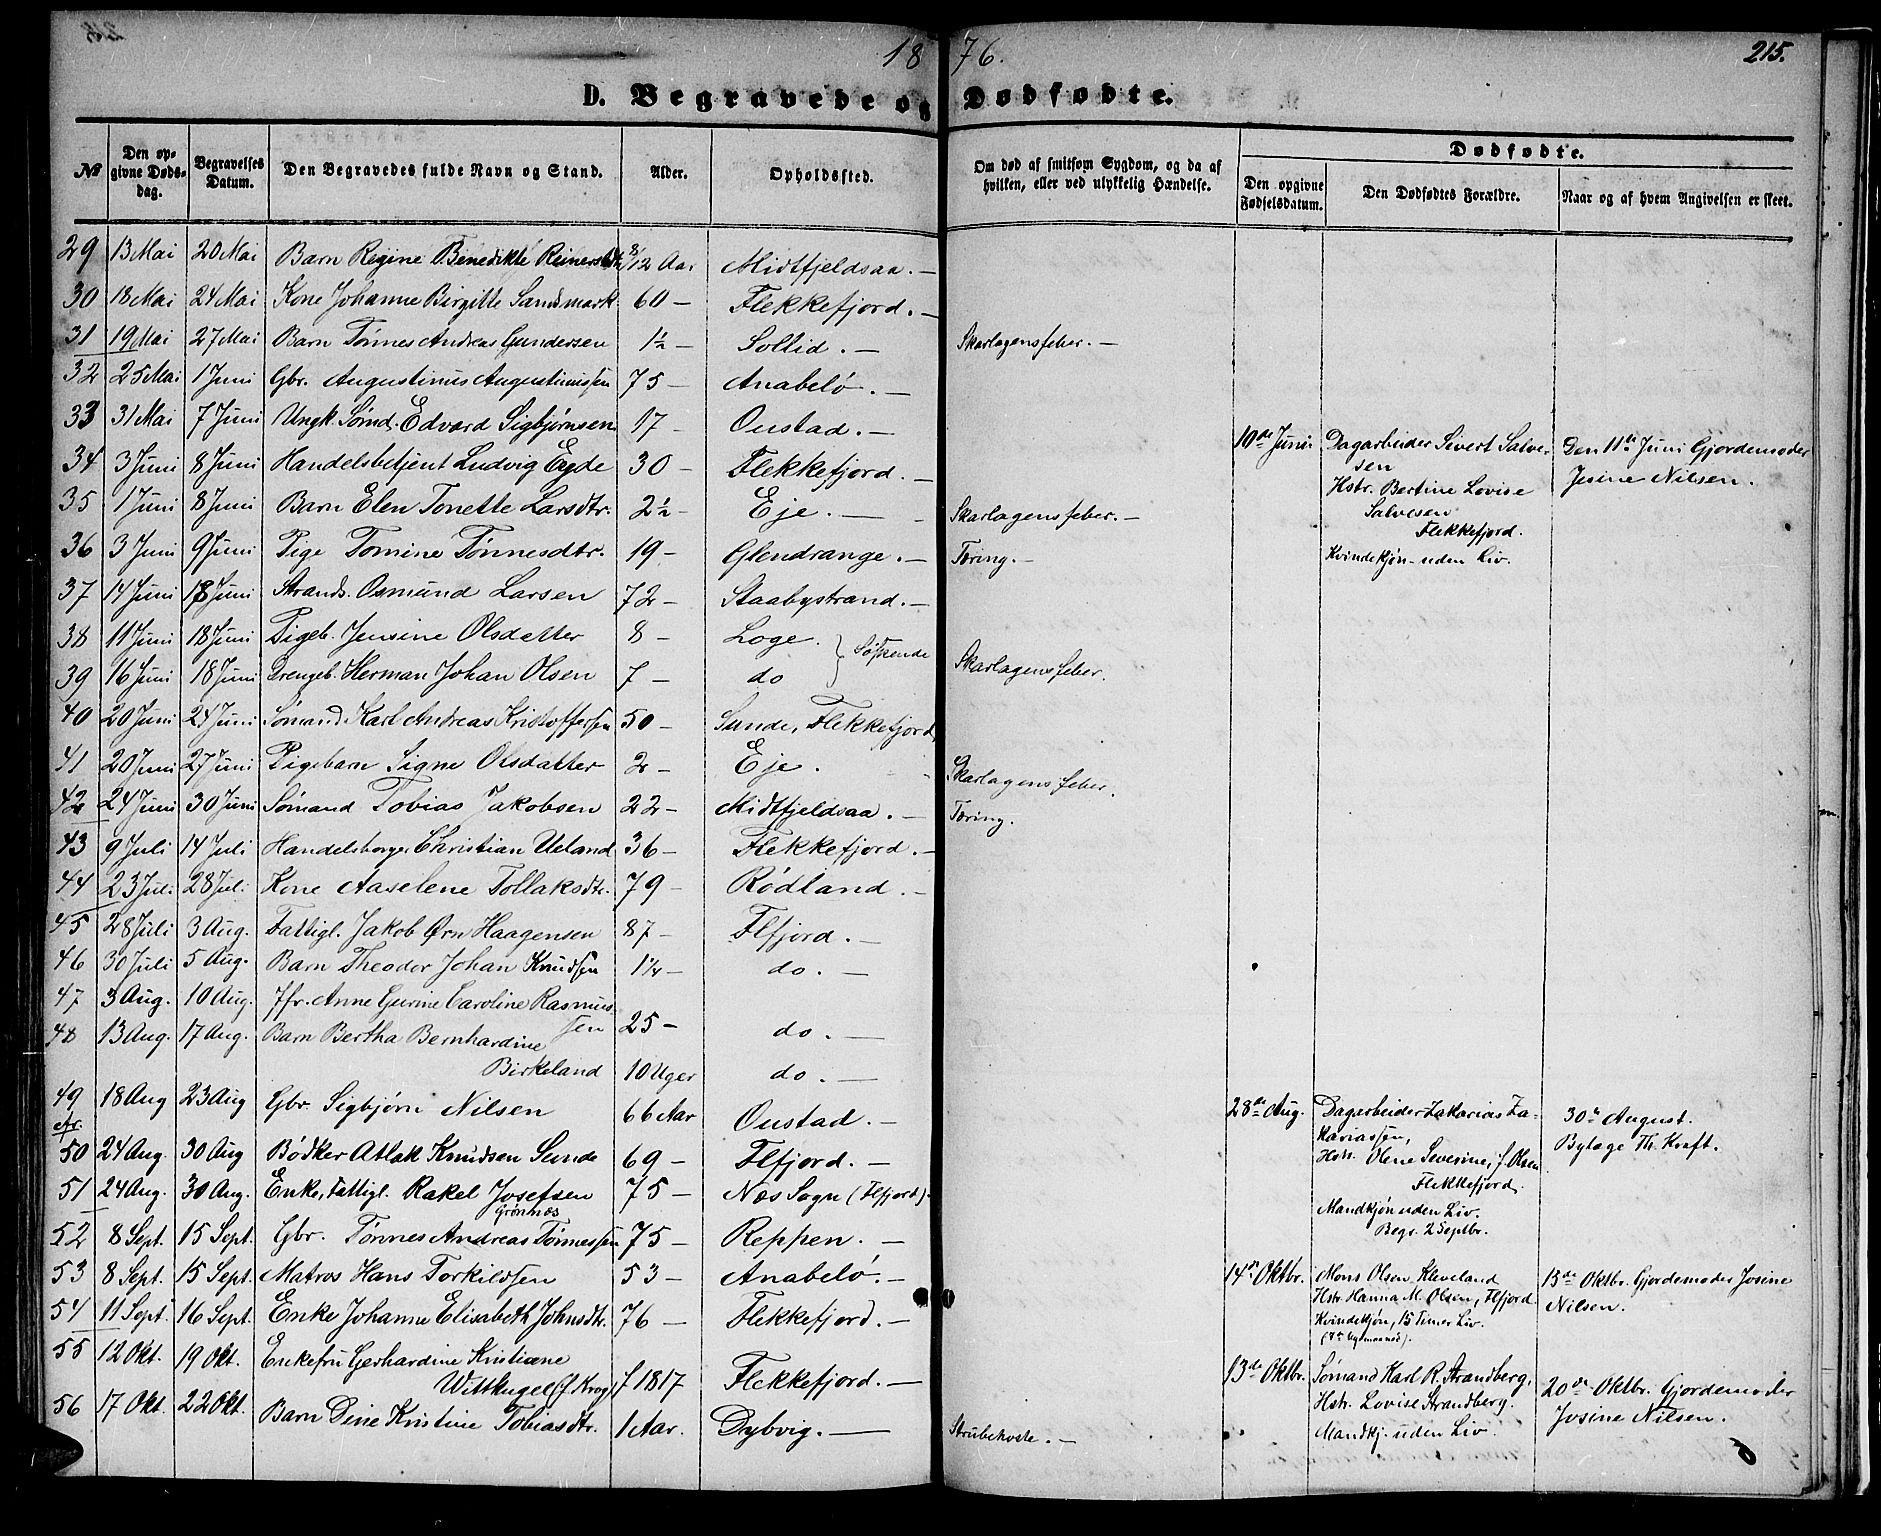 18 76. 215.
D. Begravede og Dødfødte.
№ Den opgivne Dødsdag. Begravelses Datum. Den Begravedes fulde Navn og Stand. Alder. Opholdssted. Om død af smitsom Sygdom, og da af hvilken, eller ved ulykkelig Hændelse. Dødfødte.
Den opgivne Fødselsdatum. Den Dødfødtes Forældre. Naar og af hvem Angivelsen er skeet.
29 13 Mai 20 Mai Barn Regine Benedikte Reinersdtr. 8/12 Aar Midtfjeldsaa. —
30 18 Mai 24 Mai Kone Johanne Birgitte Sandsmark 60 — Flekkefjord. —
31 19 Mai 27 Mai Barn Tønnes Andreas Gundersen 1½ — Soltid. — Skarlagensfeber. —
32 25 Mai 1 Juni Gbr. Augustinus Augustinussen 75 — Anabelø. —
33 31 Mai 7 Juni Ungk. Sømd. Edvard Sigbjørnsen 17 — Oustad. —
34 3 Juni 8 Juni Handelsbetjent Ludvig Eyde 30 — Flekkefjord. —
35 1 Juni 8 Juni Barn Elen Tonette Larsdtr. 2½ — Eje. — Skarlagensfeber. —
36 3 Juni 9 Juni Pige Tomine Tønnesdtr. 19 — Glendrange. — Tæring. —
37 14 Juni 18 Juni Strands. Osmund Larsen 72 — Staabystrand. —
38 11 Juni 18 Juni Pigeb. Jensine Olsdatter 8 — Loge. } Søskende
39 16 Juni 18 Juni Drengeb. Herman Johan Olsen 7 — do Skarlagensfeber.
40 20 Juni 24 Juni Sømand Karl Andreas Kristoffersen 50 — Sunde, Flekkefjord
41 20 Juni 27 Juni Pigebarn Signe Olsdatter 2 — Eje. Skarlagensfeber.
42 24 Juni 30 Juni Sømand Tobias Jakobsen 22 — Midtfjeldsaa. — Tæring.
43 9 Juli 14 Juli Handelsborger Christian Ueland 36 — Flekkefjord. —
44 23 Juli 28 Juli Kone Aaselene Tollaksdtr. 79 — Rødland. —
45 28 Juli 3 Aug. Fattigl. Jakob Ørn Haagensen 87 — Flfjord. —
46 30 Juli 5 Aug. Barn Theodor Johan Knudsen 1¼ — do. —
47 3 Aug. 10 Aug. Jfr. Anne Gurine Caroline Rasmussen 25 — do. —
48 13 Aug. 17 Aug. Barn Bertha Bernhardine
Birkeland 10 Uger do. —
49 18 Aug 23 Aug Gbr. Sigbjørn Nilsen 66 Aar Oustad. —
50 24 Aug. 30 Aug Bødker Atlak Knudsen Sunde 69 — Flfjord. —
51 24 Aug. 30 Aug. Enke, Fattigl. Rakel Josefsen 75 — Næs Sogn (Flfjord).
Grønnes
52 8 Sept. 15 Sept. Gbr. Tønnes Andreas Tønnessen 75 — Reppen. —
53 8 Sept. 15 Sept. Matros Hans Torkildsen 53 — Anabelø. —
54 11 Sept. 16 Sept. Enke Johanne Elisabeth Johnsdtr. 76 — Flekkefjord. —
55 12 Okt. 19 Okt. Enkefru Gerhardine Kristiane
Wittkugel (f. Krog) f 1817 Flekkefjord. —
56 17 Okt. 22 Okt. Barn Dine Kristine Tobiasdtr. 1 Aar. Dybvig. — Strubehoste. —
10de Juni Dagarbeider Sivert Salvesen
Hstr. Bertine Lovise
Salvesen
Flekkefjord.
Kvindekjøn uden Liv.
Den 11te Juni Gjordemoder
Josine Nilsen.
28de Aug. Dagarbeider Zakarias Zakariassen,
Hstr. Olene Severine, f. Olsen
Flekkefjord.
Mandkjøn uden Liv.
Begr. 2 Septbr.
30te August.
Bylæge Th. Kraft.
14de Oktbr. Mons Olsen Kleveland
Hstr. Hanna M. Olsen, Flfjord
Kvindekjøn, 15 Timer Liv.
15de Oktbr. Gjordemoder Josine
Nilsen.
13de Oktbr. Sømand Karl R. Strandberg,
Hstr. Lovise Strandberg.
Mandkj. uden Liv.
20de Oktbr. Gjordemoder
Josine Nilsen.